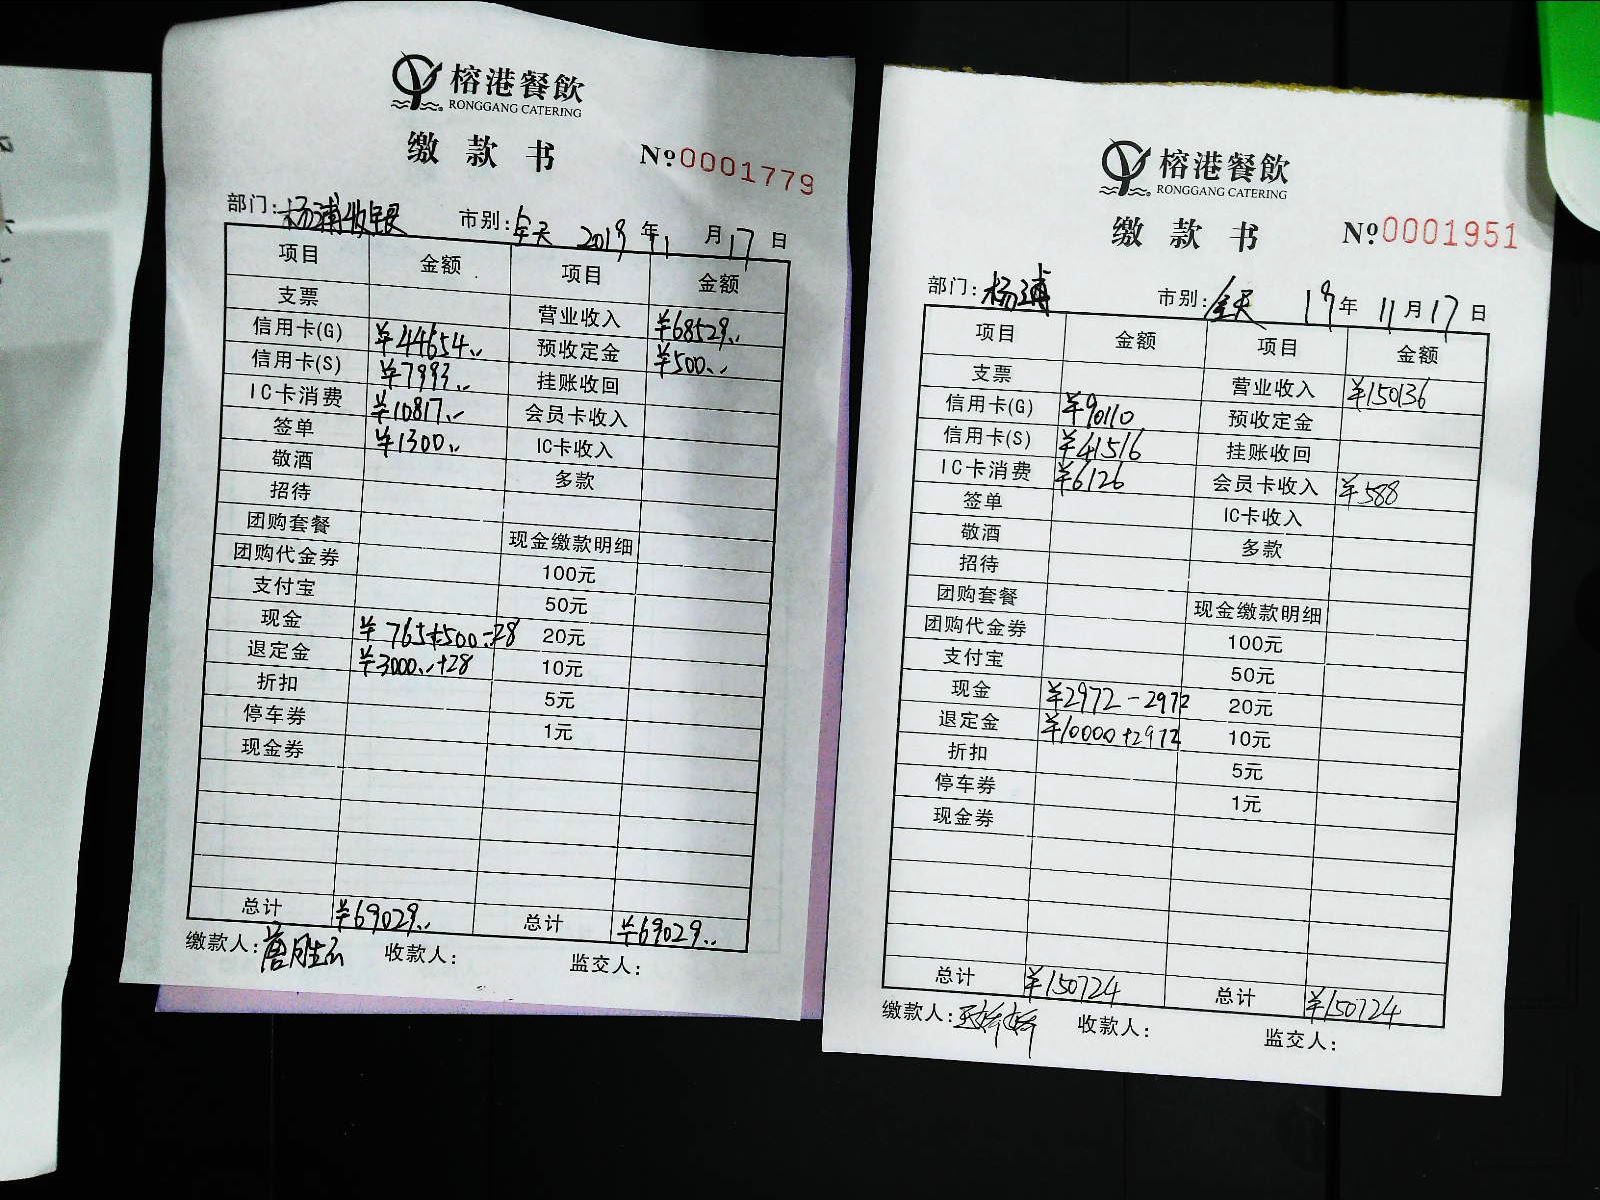 榕港餐飲
RONGGANG CATERING
缴款书
№0001779
部门:杨浦收银 市别:全天 2019年11月17日
项目 金额 项目 金额
支票 营业收入 ¥68529..
信用卡(G) ¥44654.. 预收定金 ¥500..
信用卡(S) ¥7993.. 挂账收回
IC卡消费 ¥10817.. 会员卡收入
签单 ¥1300.. IC卡收入
敬酒 多款
招待
团购套餐 现金缴款明细
团购代金券 100元
支付宝 50元
现金 ¥765+500-28 20元
退定金 ¥3000..+28 10元
折扣 5元
停车券 1元
现金券
总计 ¥69029.. 总计 ¥69029..
缴款人: 收款人: 监交人:
榕港餐飲
RONGGANG CATERING
缴款书
№0001951
部门:杨浦 市别:全天 19年11月17日
项目 金额 项目 金额
支票 营业收入 ¥150136
信用卡(G) ¥90110 预收定金
信用卡(S) ¥41516 挂账收回
IC卡消费 ¥6126 会员卡收入 ¥588
签单 IC卡收入
敬酒 多款
招待
团购套餐 现金缴款明细
团购代金券 100元
支付宝 50元
现金 ¥2972-2972 20元
退定金 ¥10000+2972 10元
折扣 5元
停车券 1元
现金券
总计 ¥150724 总计 ¥150724
缴款人: 收款人: 监交人: